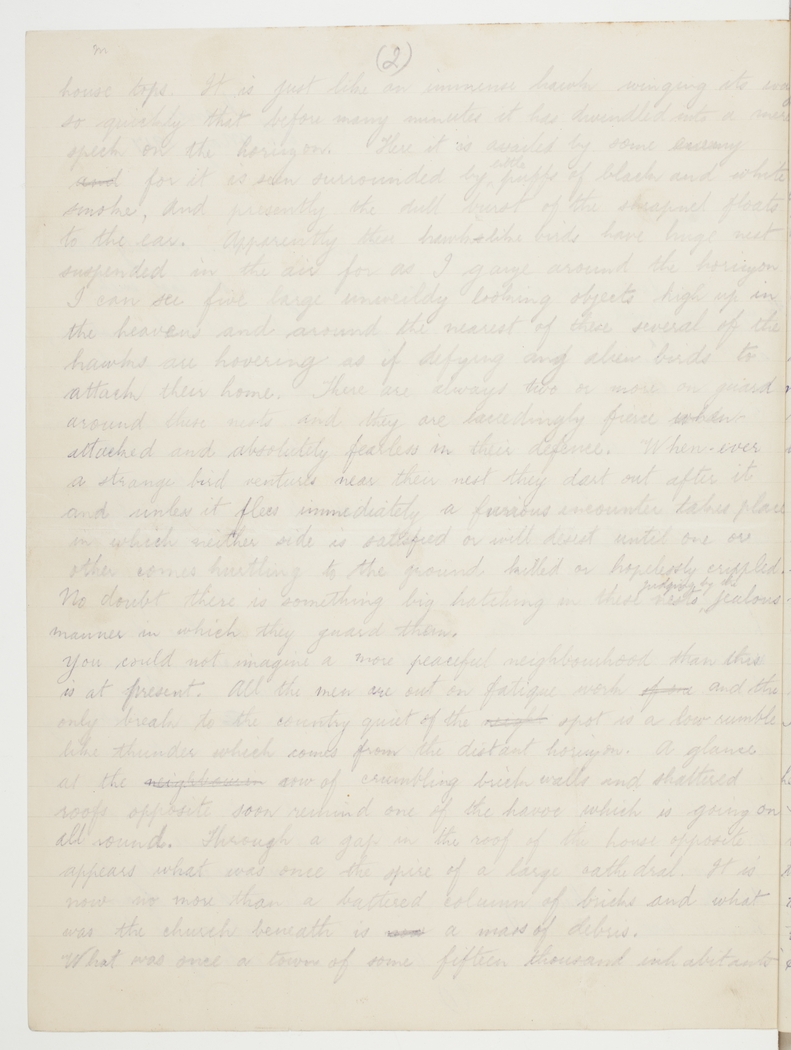 (2)
house tops. It is just like an immense hawk winging its way
so quickly that before many minutes it has dwindled into a mere
speck on the horizon. Here it is assailed by some enemy
and for it is seen surrounded by little puffs of black and white
smoke, and presently the dull burst of the shrapnel floats
to the ear. Apparently these hawk-like birds have huge nest
suspended in the air for as I gaze around the horizon
I can see five large unweildy looking objects high up in
the heavens and around the nearest of these several of the
hawks are hovering as if defying any alien birds to
attack their home. There are always two or more on guard
around these nests and they are exceedingly fierce when
attacked and absolutely fearless in their defence. When-ever
a strange bird ventures near their nest they dart out after it
and unless it flees immediately a furious encounter takes place
in which neither side is satisfied or will desist until one or
other comes hurtling to the ground killed or hopelessly crippled.
No doubt there is something big hatching in these nests, judging by the jealous
manner in which they guard them.
You could not imagine a more peaceful neighbourhood than this
is at present. All the men are out on fatigue work and the
only break to the country quiet of the neigh spot is a low rumble
like thunder which comes from the distant horizon. A glance
at the row of crumbling brick walls and shattered
roofs opposite soon remind one of the havoc which is going on
all round. Through a gap in the roof of the house opposite
appears what was once the spire of a large cathedral. It is
now no more than a battered column of bricks and what
was the church beneath is a mass of debris.
What was once a town of some fifteen thousand inhabitants